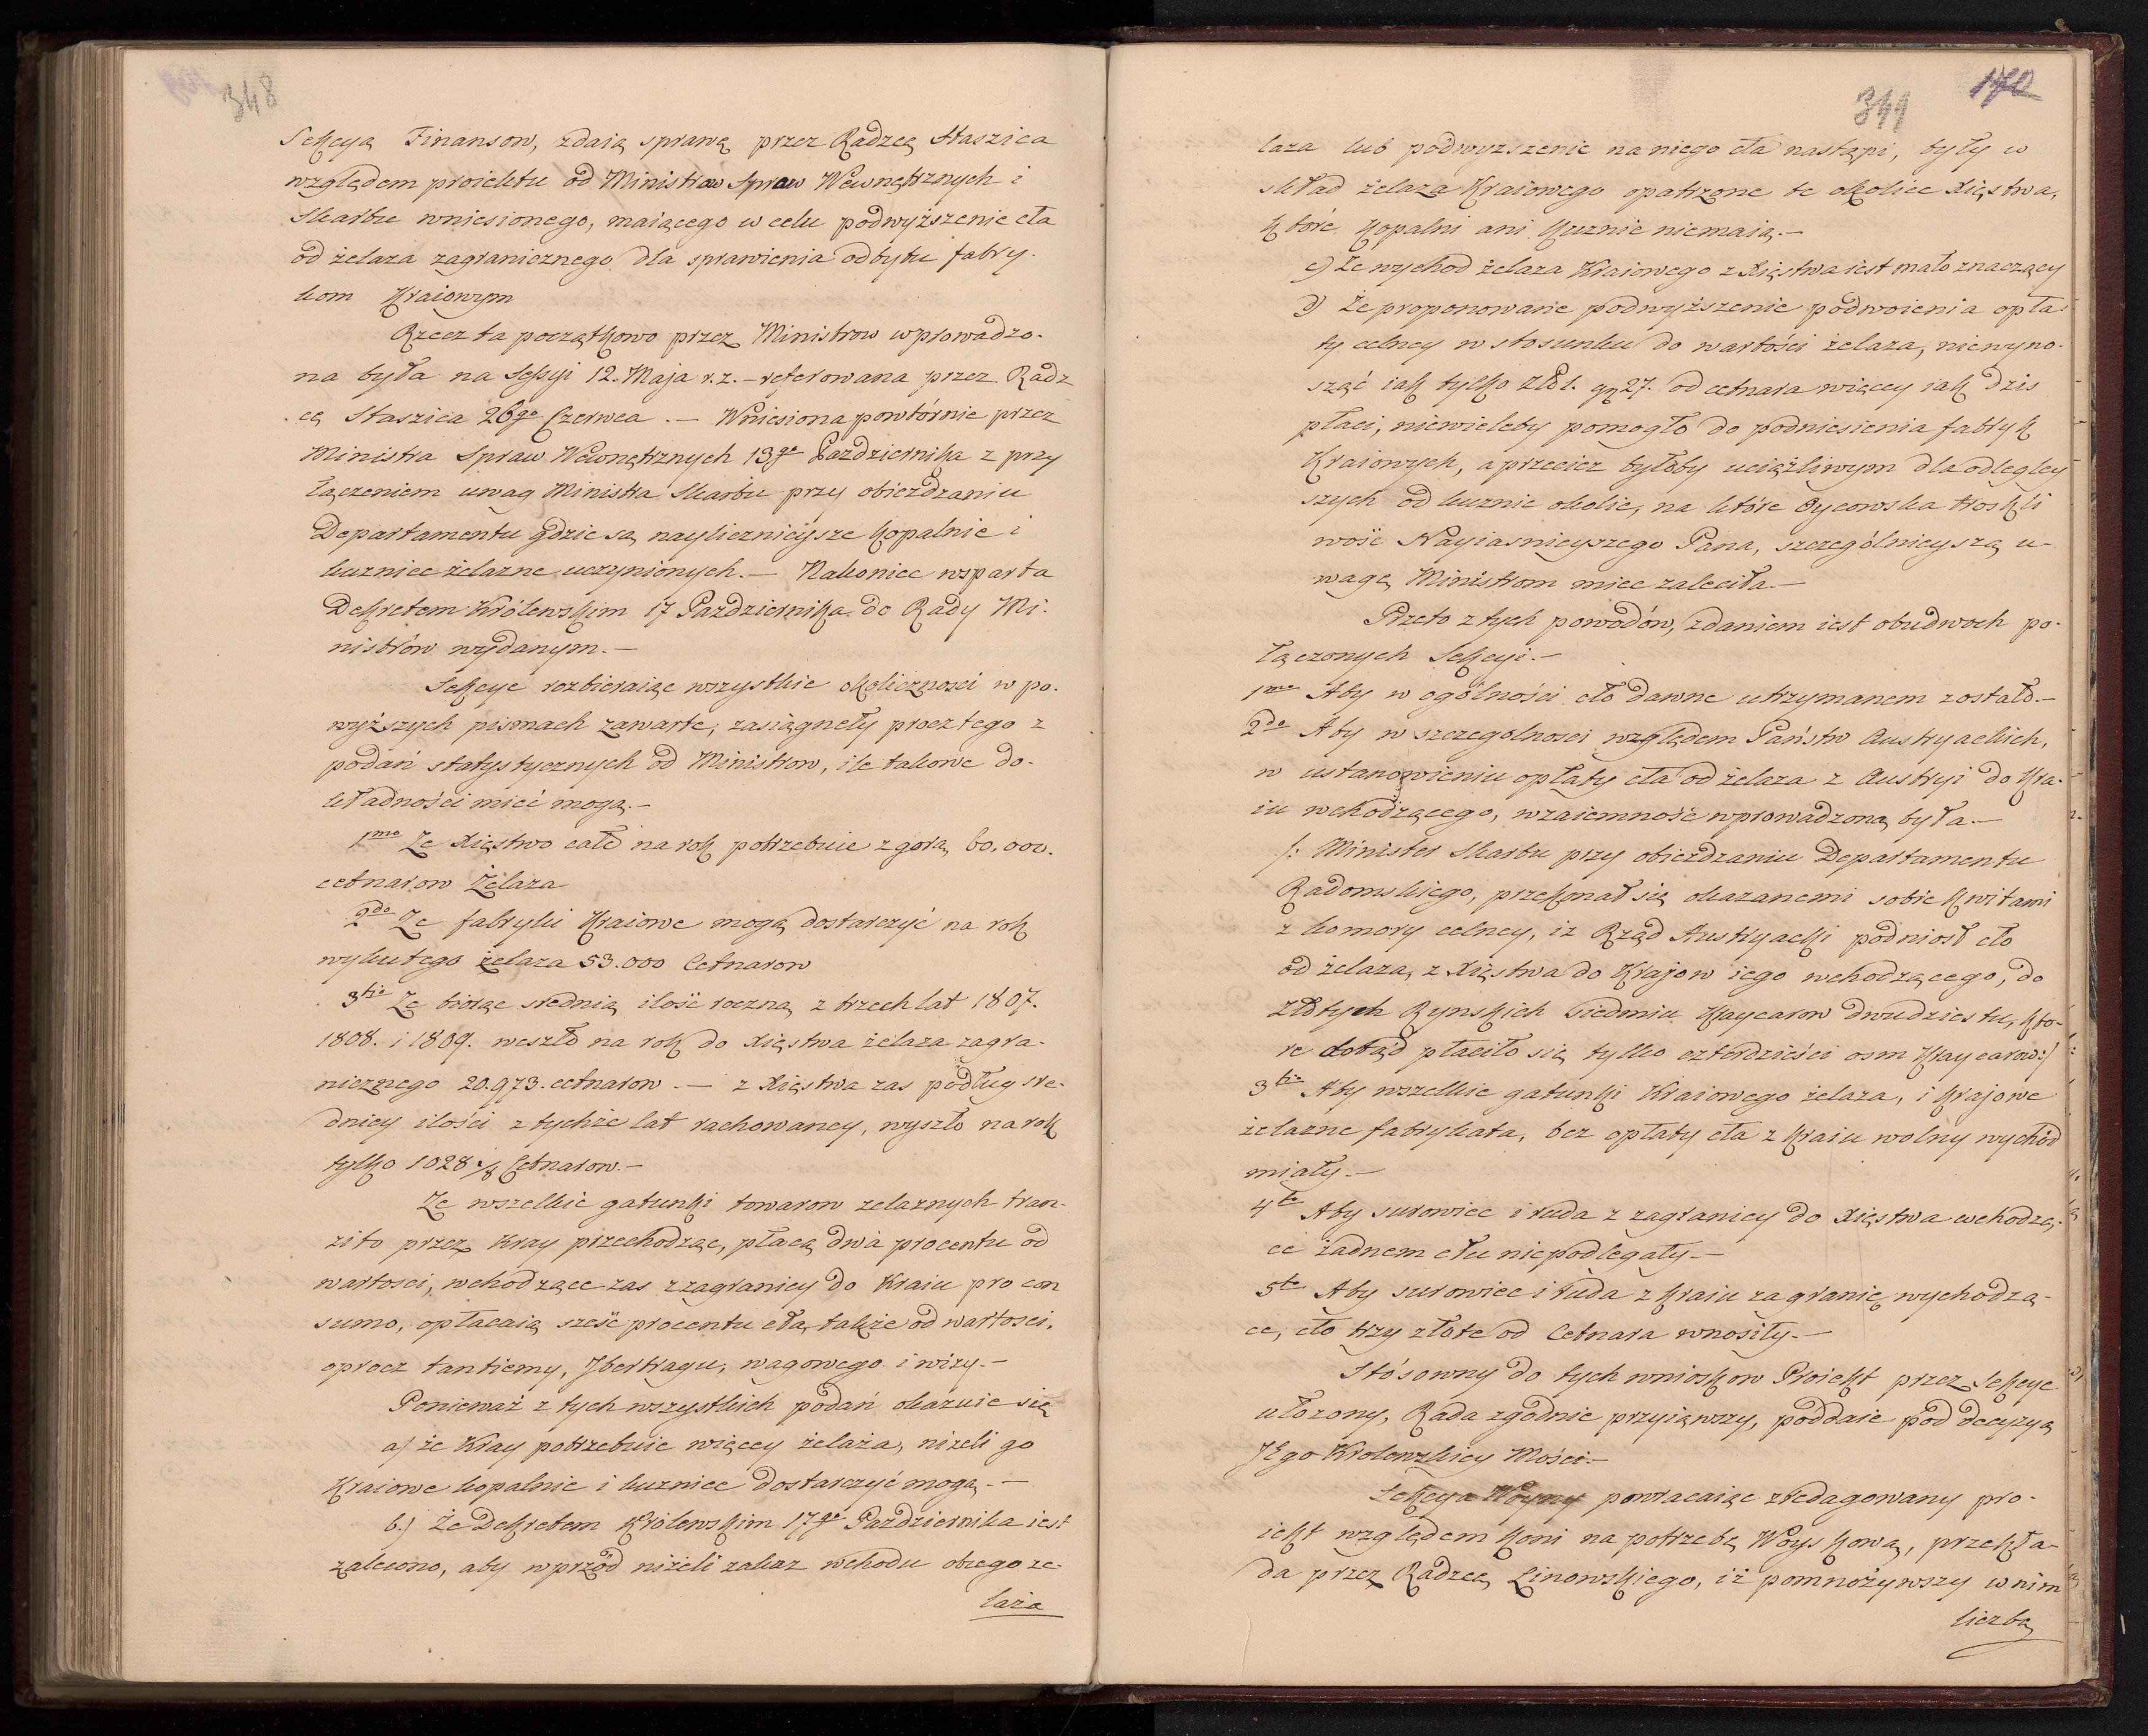 348
Sekcyą Finansow, zdaią sprawę przez Radzcę Staszica
względem proiektu od Ministrow Spraw Wewnętrznych i
Skarbu wniesionego, maiącego w celu podwyższenie cła
od żelaza zagranicznego dla sprawienia odbytu fabry-
kom Kraiowym
Rzecz ta początkowo przez Ministrow wprowadzo-
na była na Sessyi 12. Maja r. z. – referowana przez Radz
cę Staszica 26go Czerwca. – Wniesiona powtórnie przez
Ministra Spraw Wewnętrznych 13go Pazdziernika z przy
łączeniem uwag Ministra Skarbu przy obieżdzaniu
Departamentu gdzie są naylicznieysze kopalnie i
kuznice żelazne uczynionych. – Nakoniec wsparta
Dekretem Królewskim 17 Pazdziernika do Rady Mi-
nistrów wydanym. –
Sekcye rozbieraiąc wszystkie okoliczności w po-
wyższych pismach zawarte, zasiągneły procz tego z
podań statystycznych od Ministrow, ile takowe do-
kładności mieć mogą. –
1mo Ze Xięstwo całe na rok potrzebuie zgorą 60,000.
cetnarow Żelaza
2do Ze fabryki Kraiowe mogą dostarczyć na rok
wykutego żelaza 53.000 Cetnarow
3tio Ze biorąc srednią ilość roczną z trzech lat 1807.
1808. i 1809. weszło na rok do Xięstwa żelaza zagra-
nicznego 20.973. cetnarow. – z Xięstwa zas podług sre-
dniey ilości z tychże lat rachowaney, wyszło na rok
tylko 1028 Cetnarow. –
Ze wszelkie gatunki towarow zelaznych tran-
zito przez Kray przechodząc, płacą dwa procentu od
wartosci, wchodzące zas z zagranicy do Kraiu pro con
sumo, opłacaią sześć procentu cła, także od wartosci,
oprocz tantiemy, Ybertragu, wagowego i wizy. –
Ponieważ z tych wszystkich podań okazuie się
a) że Kray potrzebuie więcey żelaza, niżeli go
Kraiowe kopalnie i kuznice dostarczyć mogą. –
b.) Że Dekretem Królewskim 17go Pazdziernika iest
zalecono, aby wprzód niżeli zakaz wchodu obcego że-
laza
349 170
laza lub podwyzszenie na niego cła nastąpi, były w
skład żelaza Kraiowego opatrzone te okolice Xięstwa,
które kopalni ani Kuznic niemaią. –
c) Że wychod żelaza Kraiowego z Xięstwa iest mało znaczący
d) Że proponowane podwyższenie podwoienia opła-
ty celney w stosunku do wartości żelaza, niewyno-
sząć iak tylko Złł. gr 27. od cetnara więcey iak dzis
płaci, niewieleby pomogło do podniesienia fabryk
Kraiowych, a przecież byłoby uciążliwym dla odległey
szych od kuznic okolic, na które Oycowska troskli
wość Nayiasnieyszego Pana, szczególnieyszą u-
wagę Ministrom mieć zaleciła. –
Przeto z tych powodów, zdaniem iest obudwoch po-
łączonych Sekcyi. –
1mo Aby w ogólności cło dawne utrzymanem zostało. –
2do Aby w szczegolnosci względem Państw Austryackich,
w ustanowieniu opłaty cła od żelaza z Austryi do Kra-
iu wchodzącego, wzaiemność wprowadzoną była. –
/: Minister Skarbu przy obieżdzaniu Departamentu
Radomskiego, przekonał się okazanemi sobie kwitami
z komory celney, iż Rząd Austryacki podniosł cło
od żelaza, z Xięstwa do Krajow iego wchodzącego, do
złotych Rynskich siedmiu Kraycarow dwudziestu, kto-
re dotąd płaciło się tylko czterdzieści osm Kraycarow:/
3tio Aby wszelkie gatunki Kraiowego żelaza, i krajowe
żelazne fabrykata, bez opłaty cła z Kraiu wolny wychód
miały. –
4to Aby surowiec i ruda z zagranicy do Xięstwa wchodzą-
ce żadnem cłu niepodlegały. –
5to Aby surowiec i ruda z kraiu za granicę wychodzą-
ce, cło trzy złote od Cetnara wnosiły. –
Stósowny do tych wnioskow Proiekt przez Sekcye
ułożony, Rada zgodnie przyiąwszy, poddaie pod decyzyą
JEgo Krolewskiey Mości. –
Sekcya Woyny powracaiąc zredagowany pro-
iekt względem koni na potrzebę Woyskową, przekła-
da przez Radzcę Linowskiego, iż pomnożywszy w nim
liczbę